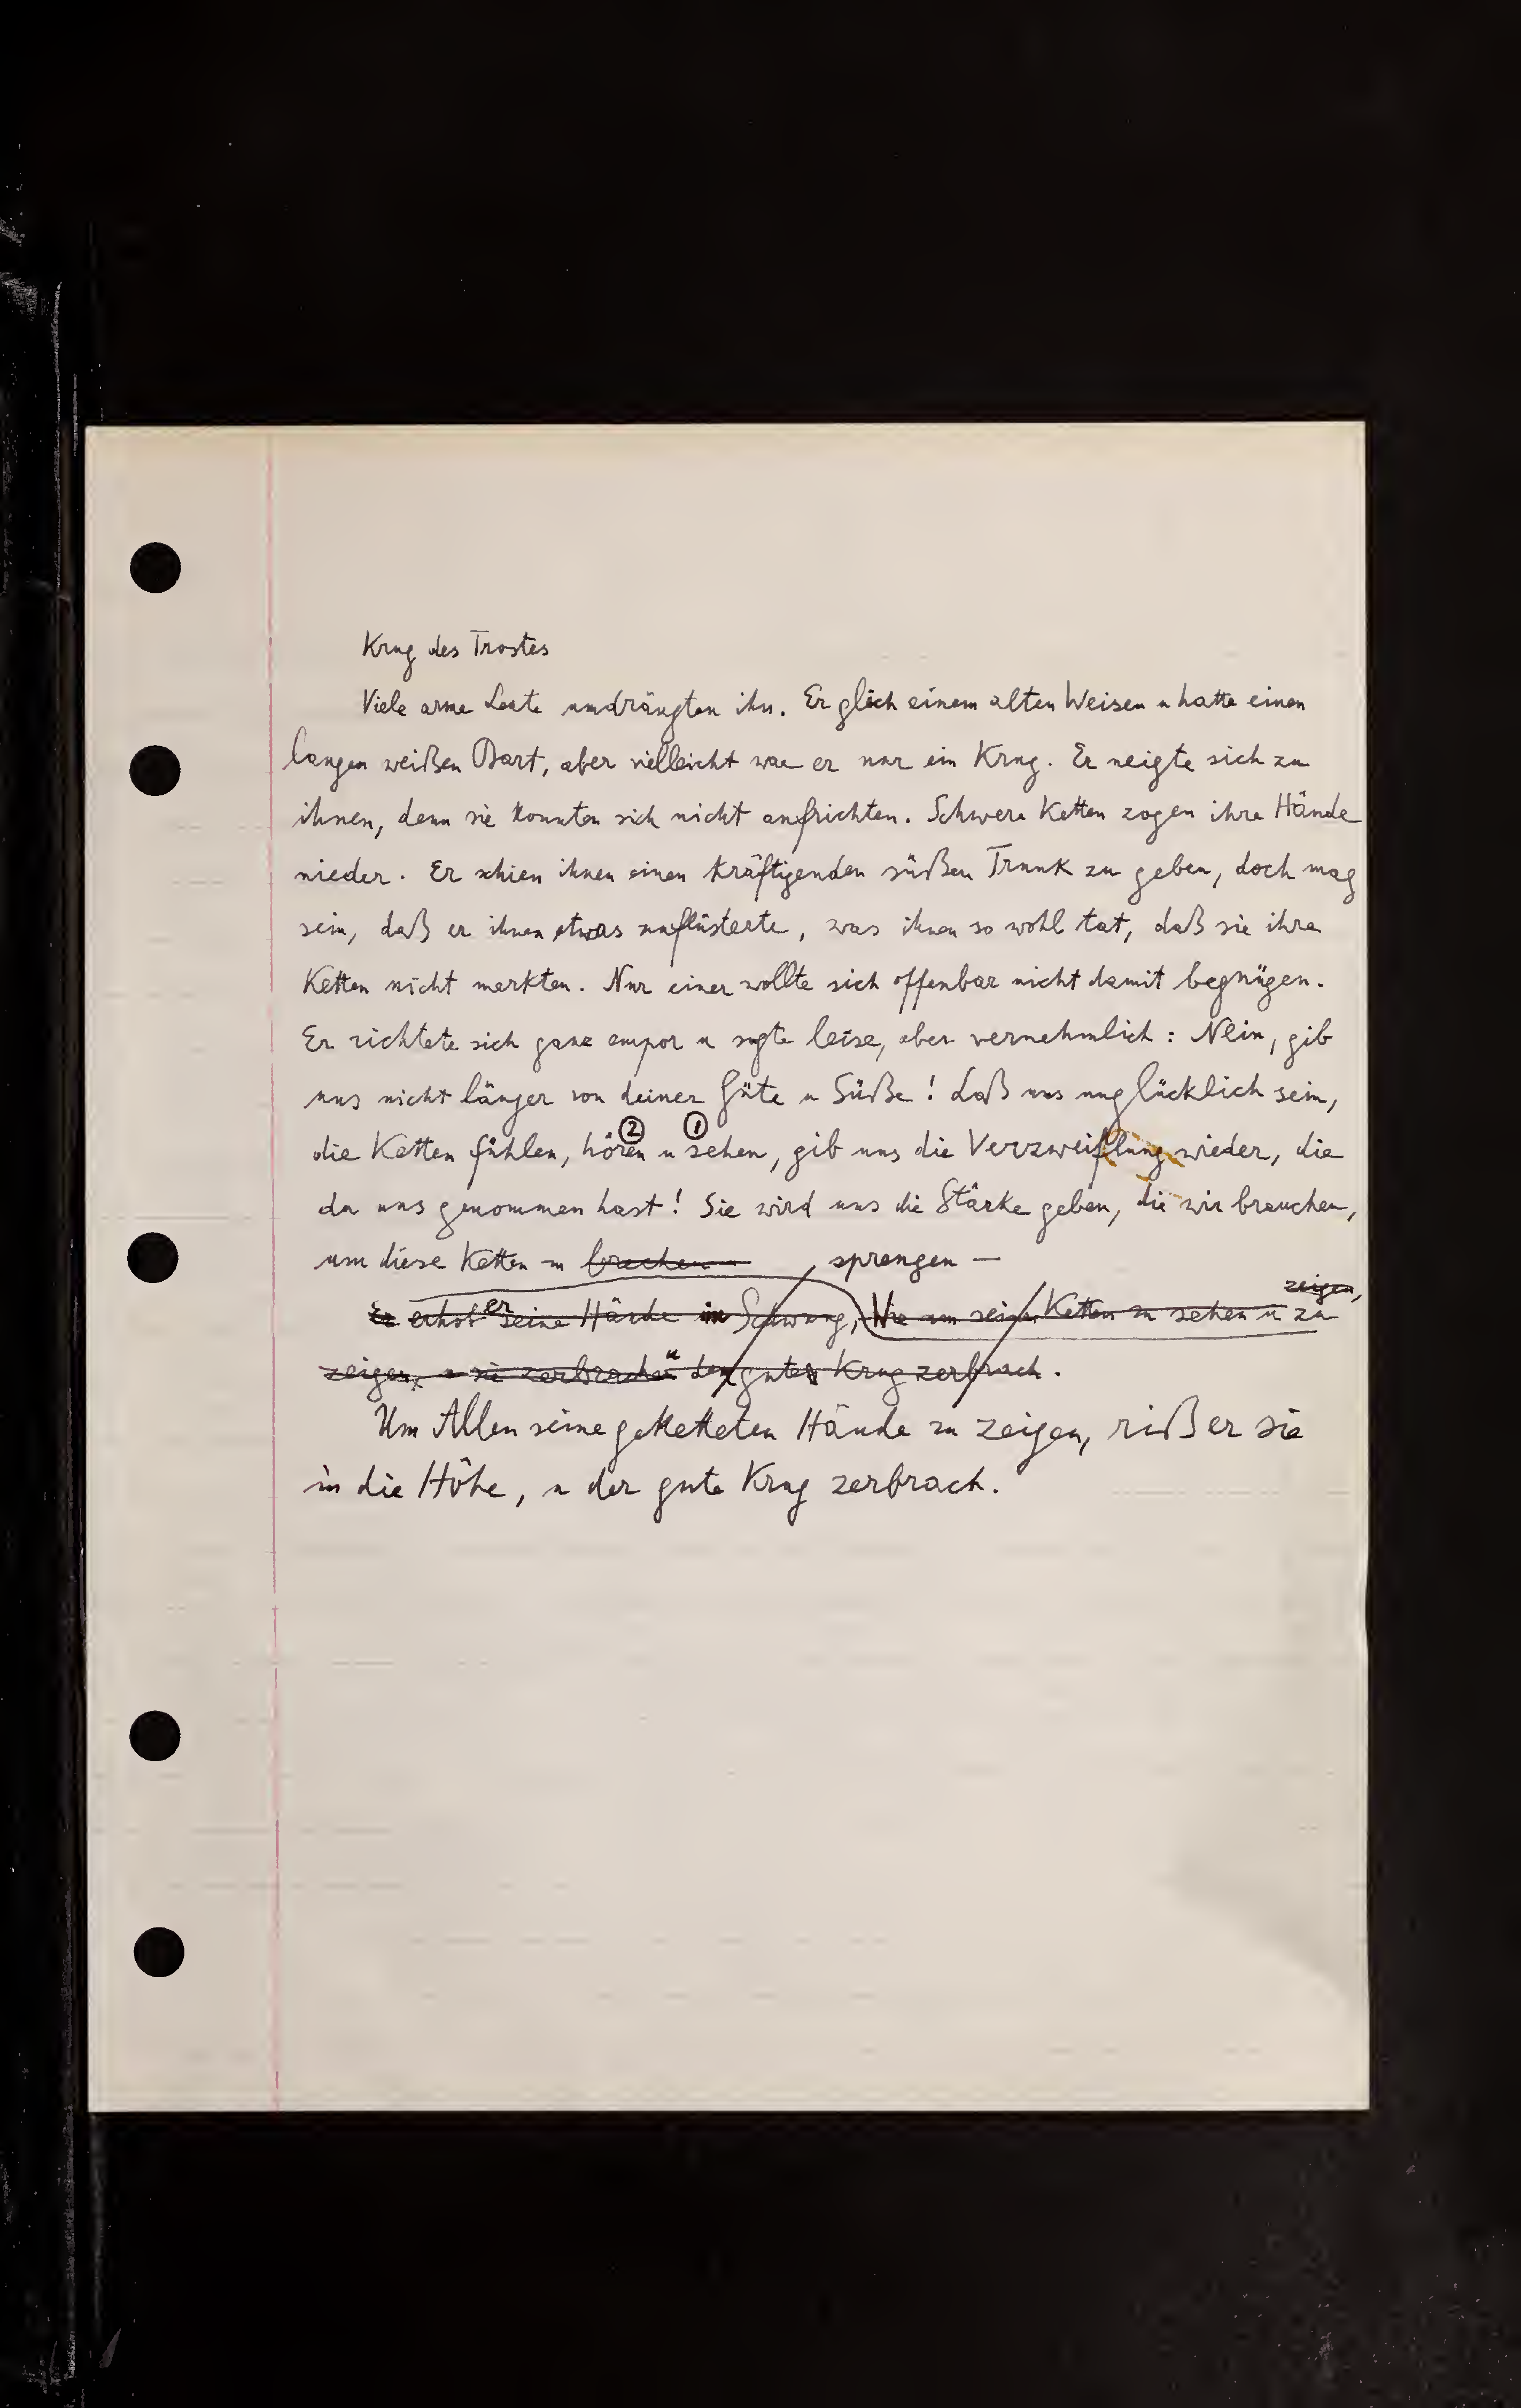 Krug des Trostes
Viele arme Leute umdrängten ihn. Er glich einem alten Weisen u hatte einen
langen weißen Bart, aber vielleicht war er nur ein Krug. Er neigte sich zu
ihnen, denn sie konnten sich nicht aufrichten. Schwere Ketten zogen ihre Hände
nieder. Er schien ihnen einen kräftigenden süßen Trunk zu geben, doch mag
sein, daß er ihnen etwas zuflüsterte, was ihnen so wohl tat, daß sie ihre
Ketten nicht merkten. Nur einer wollte sich offenbar nicht damit begnügen.
Er richtete sich ganz empor u sagte leise, aber vernehmlich: Nein, gib
uns nicht länger von deiner Güte u Süße! Laß uns unglücklich sein,
② ①
die Ketten fühlen, hören u sehen, gib uns die Verzweiflung wieder, die
du uns genommen hast! Sie wird uns die Stärke geben, die wir brauchen,
um diese Ketten zu brechen sprengen —
zeigen,
Er erhob er seine Hände im Schwung, Wie um seine Ketten zu sehen u zu
zeigen, u sie zerbrachen u der gute Krug zerbrach.
Um Allen seine geketteten Hände zu zeigen, riß er sie
in die Höhe, u der gute Krug zerbrach.